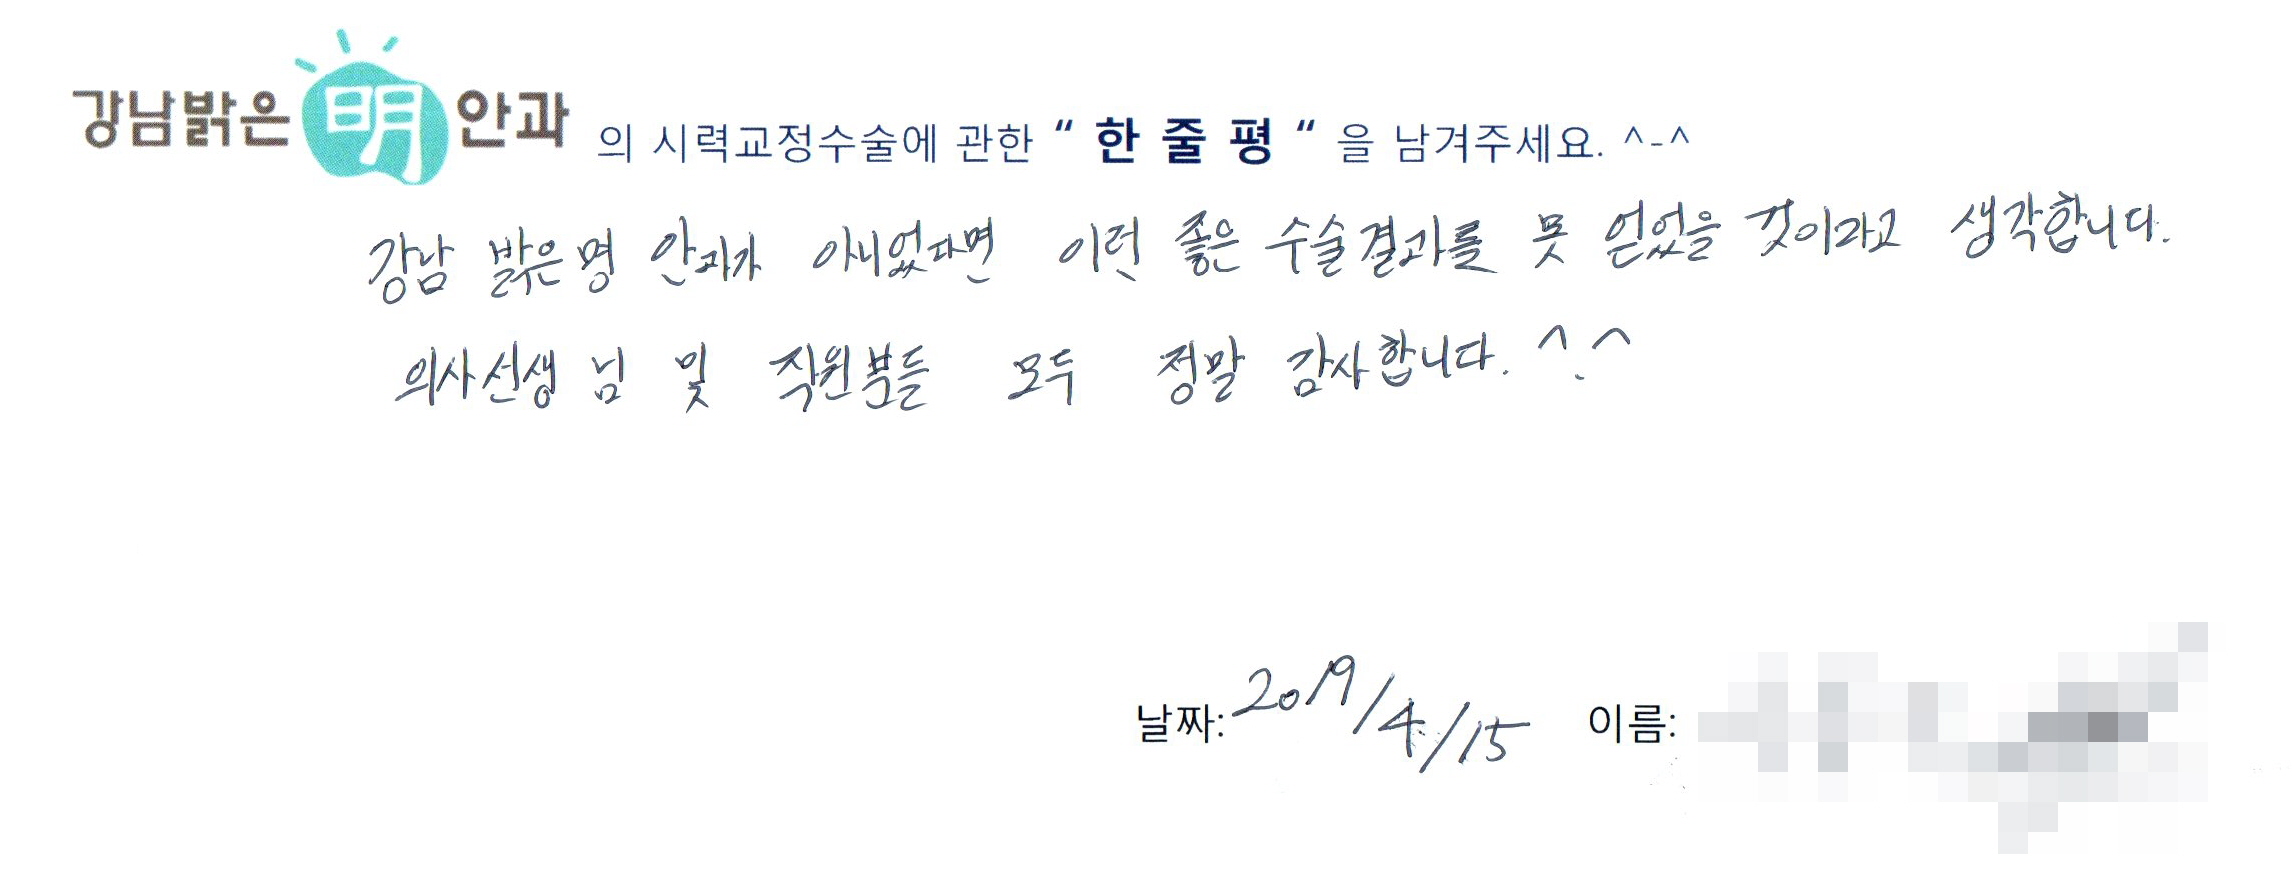 강남밝은明안과 의 시력교정수술에 관한 “ 한 줄 평 “ 을 남겨주세요. ^-^
강남 밝은명 안과가 아니었다면 이런 좋은 수술결과를 못 얻었을 것이라고 생각합니다.
의사선생님 및 직원분들 모두 정말 감사합니다. ^.^
날짜: 2019/4/15 이름: